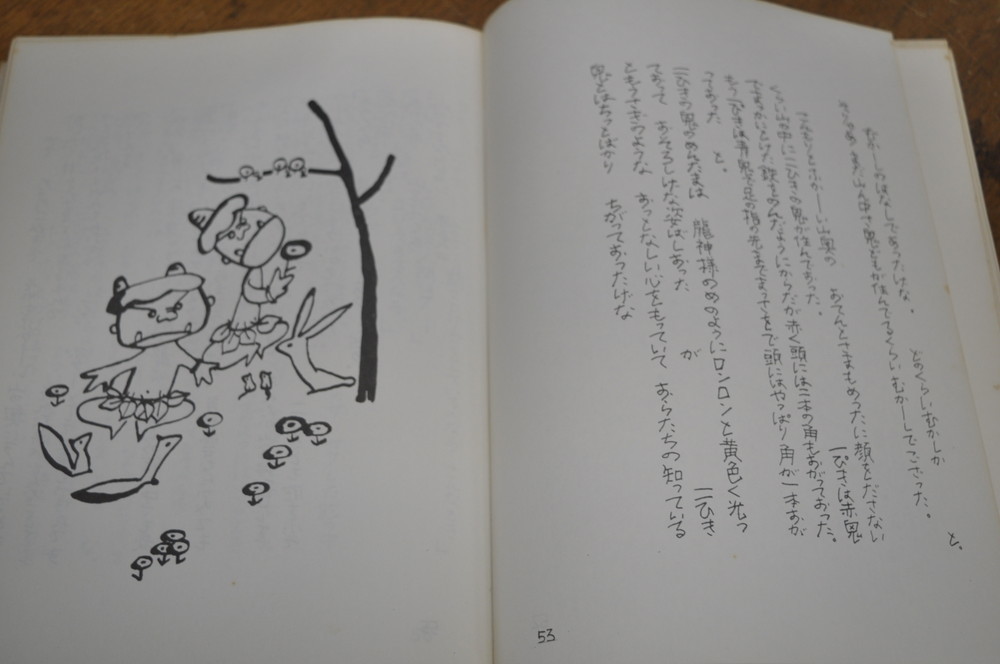 むかーしのはなしであったげな。 どのくらいむかしか と、
そりゃあ まんだ 山ん中さ鬼どもが住んでるくらい むかーしでござった。
こんもりとふかーーい山奥の おてんとさまもめったに顔をださない
くらい山の中に 二ひきの鬼が住んであった。 一ぴきは赤鬼
で まっかにとけた鉄をのんだようにからだが赤く 頭には二本の角もあがっておった。
もう一ぴきは青鬼 足の指の先までまっつぁをで 頭にはやっぱり角が一本あが
っておった と。
二ひきの鬼のめんたまは 龍神様のめのようにロンロンと黄色く光っ
ておって おそろしげな姿はしおった が 二ひき
ともうさぎのような おっとなしい心をもっていて おらたちの知っている
鬼とはちっとばかり ちがっておったげな
53